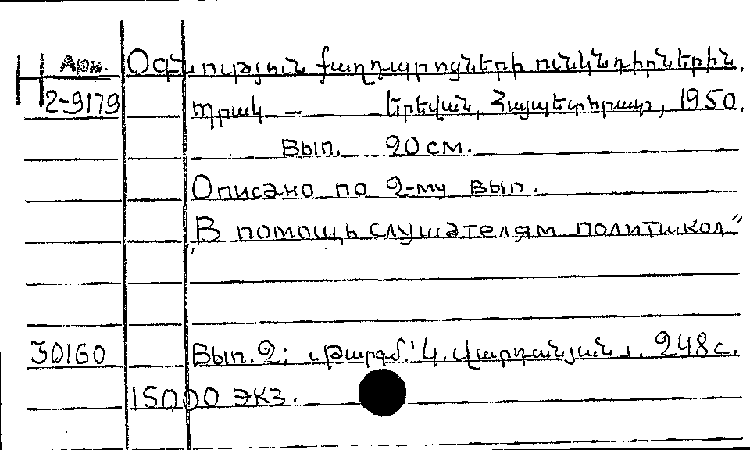 Н Арм. Օգնություն քաղդպրոցների ունկնդիրներին.
2-9179 Պրակ — Երեվան, Հայպետհրատ, 1950.
Вып. 20 см.
Описано по 2-му вып.
"В помощь слушателям политшкол"
30160 Вып. 2; Թարգմ.՝ Վարդանյան. 248 с.
15000 экз.